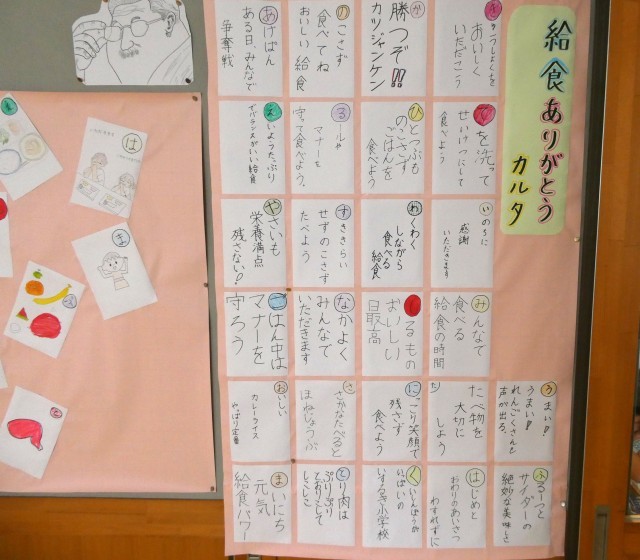 給食ありがとう
カルタ
おいしく
いただこう
か
勝つぞ!!
カツジャンケン
のこさず
食べてね
おいしい給食
あげぱん
ある日、みんなで
争奪戦
を洗って
せいけつにして
食べよう
ひとつぶも
のこさず
ごはんを
食べよう
るールや
マナーを
守って食べよう。
えいようたっぷり
でバランスがいい給食
いのちに
感謝
いただきます
わくわく
しながら
食べる
給食
すききらい
せずのこさず
たべよう
やさいも
栄養満点
残さない!
みんなで
食べる
給食の時間
るもの
おいしい
最高
なかよく
みんなで
いただきます
ごはん中は
マナーを
守ろう
うまい!
うまい!
れんごくさんと
声が出る。
た
たべ物を
大切に
しよう
にっこり笑顔で
残さず
食べよう
さかなたべると
ほねじょうぶ
おいしい
カレーライス
やはり定番
ふるーつと
サイダーの
絶妙な美味しさ
はじめと
おわりのあいさつ
わすれずに
くいしんぼうが
いっぱいの
いするぎ小学校
とり肉は
ぷりぷり
とおりこして
しこしこ
まいにち
元気
給食パワー
は
ま